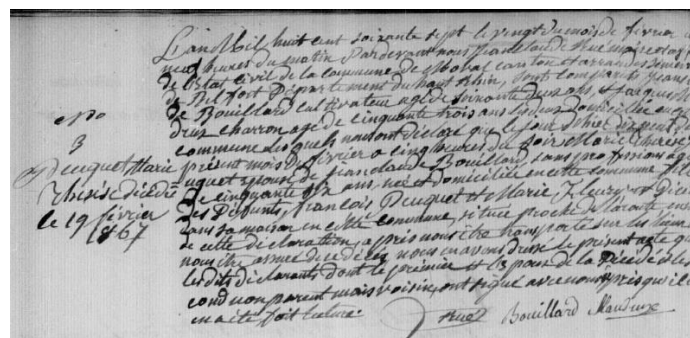 L'an Mil huit cent soixante sept le vingt du mois de février
neuf heures du matin Pardevant nous Jean Claude Ruez maire
de l'état Civil de la commune de Moval canton et arrondissement
de Belfort Département du haut Rhin, Sont comparus Jean
de Bouillard cultivateur agé de soixante deux ans, et Jacques
dreux charron agé de cinquante trois ans tous deux domiciliés en
commune lesquels nous ont déclaré que le jour d'hier dix neuf
présent mois de février a cinq heures du soir Marie Therèse
uquet épouse de Jean Claude Bouillard, sans profession
de cinquante ans, née et domiciliée en cette commune
des Défunts, François Peuquet et Marie Fleury
dans sa maison en cette commune, située proche
de cette déclaration, après nous être transporté sur les lieux
nous être assuré de ce décès nous en avons dressé le présent acte
les dits déclarants dont le premier est époux de la Décédée
cond non parent mais voisin, ont signé avec nous
en acte fait lecture.
No
3
Peuquet Marie
Thérèse décédée
le 19 février
1867
Ruez Bouillard Maudrux